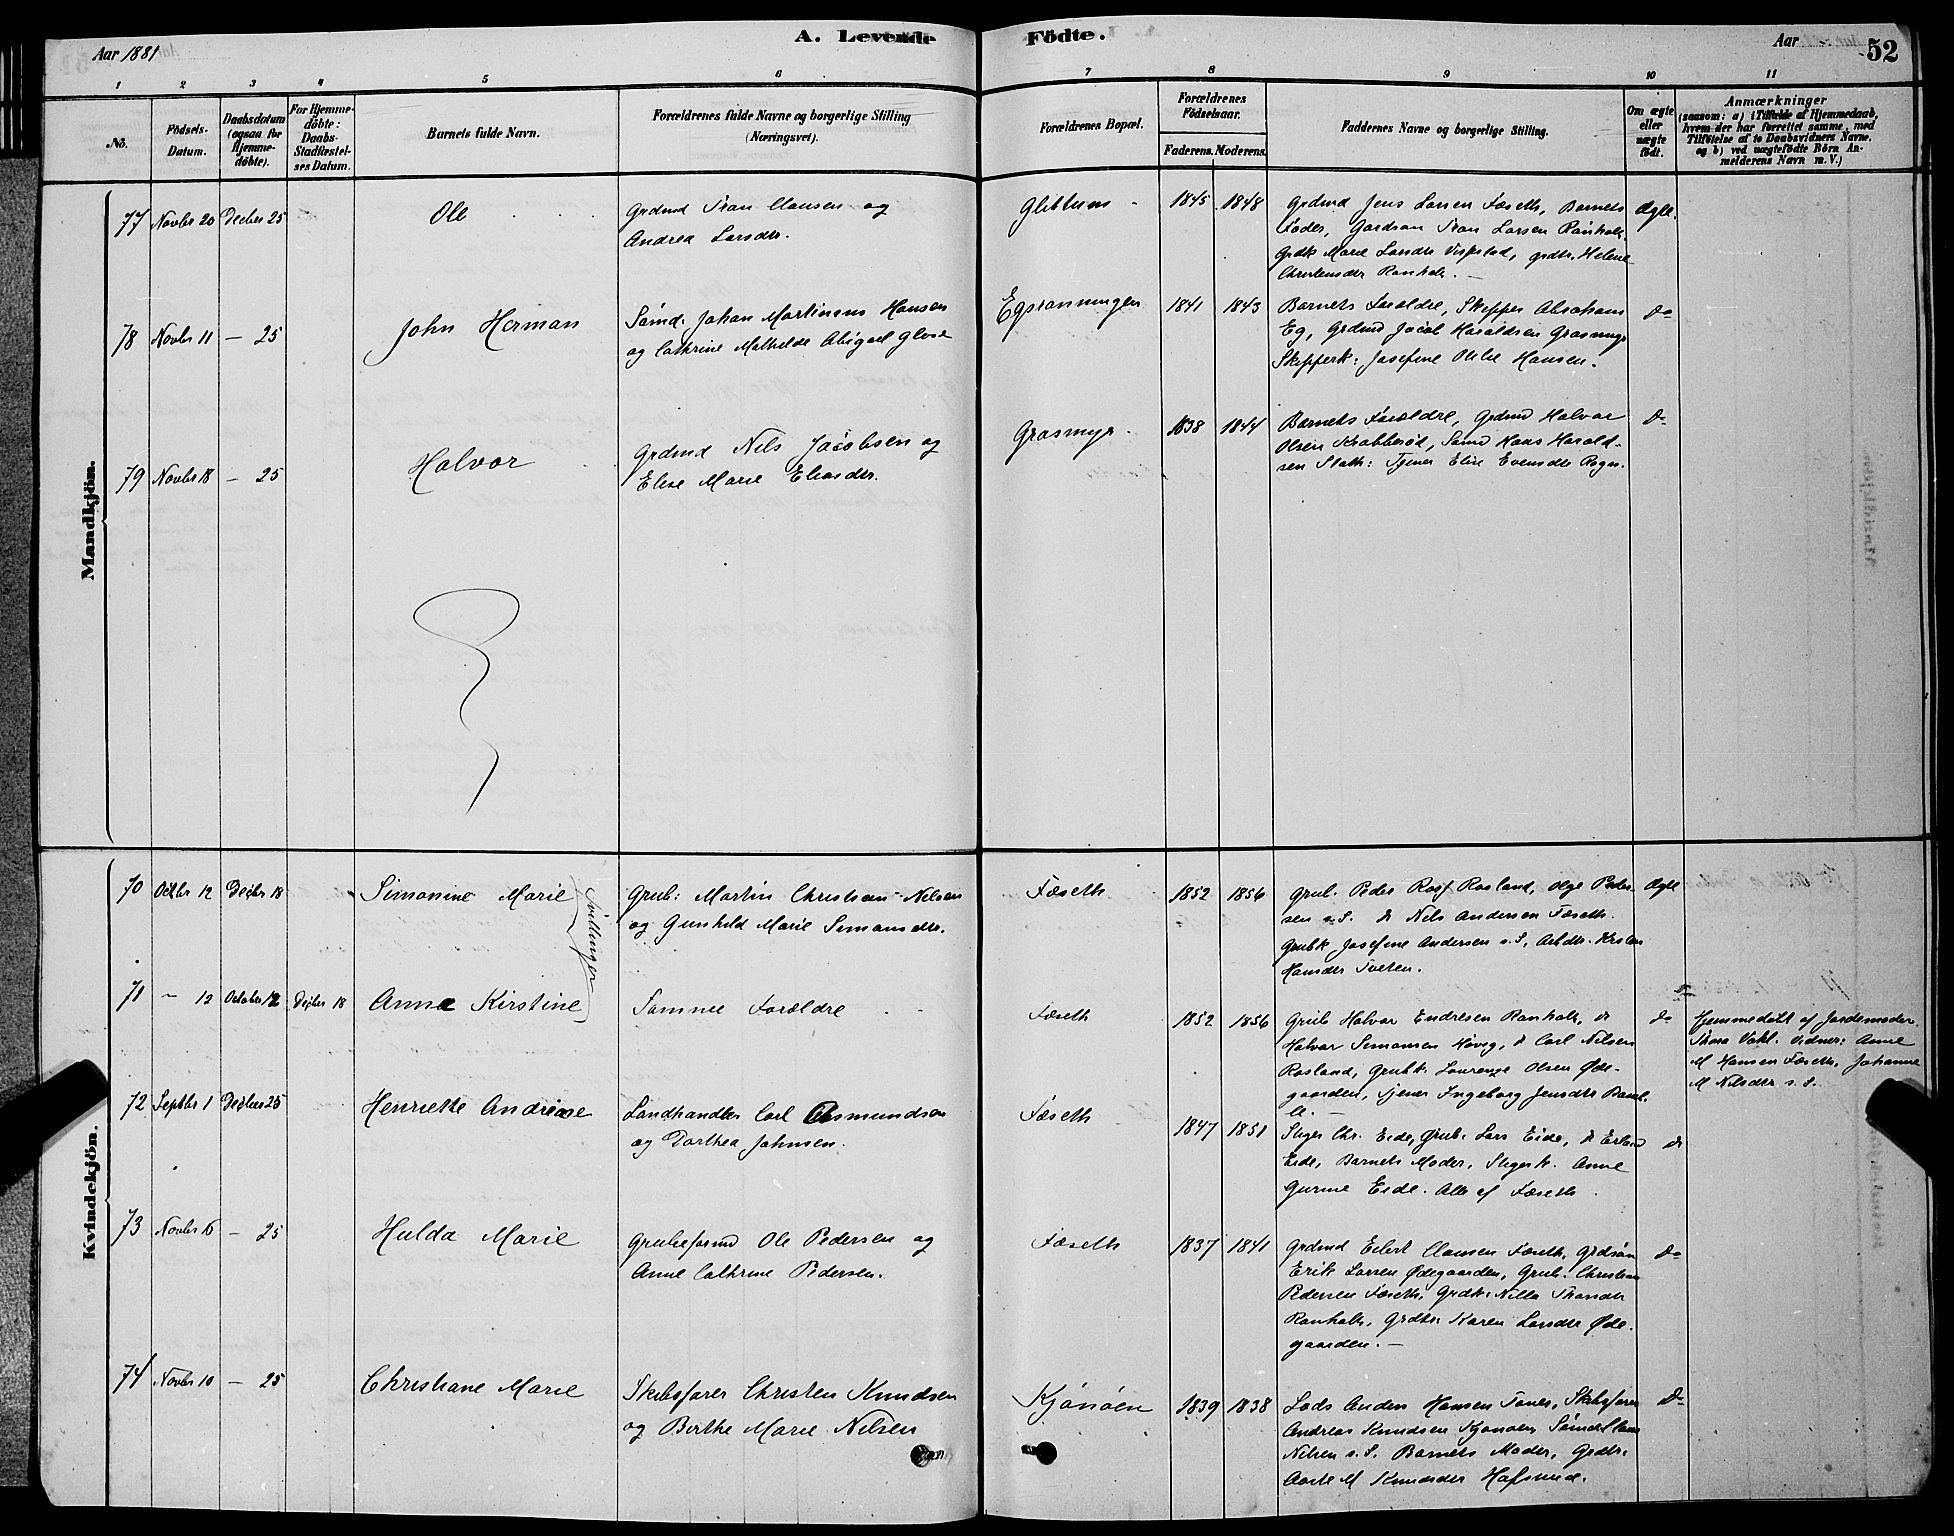 Aar 1881
A. Levende
Födte.
Aar
52
1 2 3 4 5 6 7 8 9 10 11
No.
Födsels-
Datum.
Daabsdatum
(ogsaa for
Hjemme-
döbte).
For Hjemme-
döbte:
Daabs-
Stadfæstel-
ses Datum.
Barnets fulde Navn.
Forældrenes fulde Navne og borgerlige Stilling
(Næringsvei).
Forældrenes Bopæl.
Forældrenes
Födselsaar.
Faderens. Moderens.
Faddernes Navne og borgerlige Stilling.
Om ægte
eller
uægte
födt.
Anmærkninger
(saasom: a) i Tilfælde af Hjemmedaab,
hvem der har forrettet samme, med
Tilföielse af to Daabsvidners Navne,
og b) ved uægtefödte Börn An-
melderens Navn m. V.)
Mandkjön.
77 Novbr 20 Decber 25
Ole
Grdmd Tran Clausen og
Andrea Larsdtr.
1845 1848
Grdmd Jens Larsen Fæseth, Barnets
Fader, Gardsøn Tran Larsen Rønholt,
Grdk Marie Larsdtr Vispstad, grdtr. Helene
Christensdtr Rønholt. —
Ægte.
78 Novbr 11 — 25
John Herman
Sømd. Johan Martinus Hansen
og Cathrine Mathilde Abigael
1841 1843
Barnets Forældre, Skipper Abraham
Eg, Grdmd Jacob Haraldsen Grasmyr
Skipperk: Josefine Hansen.
Do
79 Novbr 18 — 25
Halvor
Grdmd Nils Jacobsen og
Elise Marie Eliasdtr.
Grasmyr.
1838 1844
Barnets Forældre, Grdmd Halvor
Olsen Krabberød, Sømd Hans Harald-
sen Stath: Tjener Elise Evensdtr Rogn.
Do
Kvindekjön.
70 Octbr 12 Decbr 18
Simonine Marie
Tvillinger
Grub: Martin Christian Nilsen
og Gunhild Marie Simonsdtr.
Fæseth
1852 1856
Grub. Peder Rosland, Olge Peder-
sen s. S. do Nils Andersen Fæseth.
Grubk Josefine Andersen s. S, Arbdtr. Kirsten
Hansdtr Tveten.
Ægte
71 — 12 October 12 Decber 18
Anna Kirstine
Samme Forældre
Fæseth
1852 1856
Grub Halvor Endresen Rønholt, do
Halvor Simonsen Høveg, do Carl Nilsen
Rosland, Grubk. Laurenze Olsen Øde-
gaarden, tjener Ingeborg Jensdtr Bamb-
le. —
do
Hjemmedøbt af Jordemoder
Thora Vahl. Vidner: Anne
M Hansen Fæseth, Johanne
M Nilsdtr s. S.
72 Septbr 1 Decber 25
Henriette Andrine
Landhandler Carl Asmundsen
og Dorthea Johnsen.
Fæseth
1847 1851
Stiger Chr. Eide, Grub. Lars Eide, do Erland
Eide, Barnets Moder, Stigerk. Anne
Gurine Eide. Alle af Fæseth.
do
73 Novbr 6 — 25
Hulda Marie
Grubeformd Ole Pedersen og
Anne Cathrine Pedersen.
Fæseth
1837 1841
Grdmd Eilert Clausen Fæseth, Grdsøn
Erik Larsen Ødegaarden, Grub. Christian
Pedersen Fæseth, Grdk. Nilla Thorsdtr
Rønholt, Grdtr. Karen Larsdtr Øde-
gaarden. —
Do
74 Novbr 10 — 25
Christiane Marie
Skibsfører Christen Knudsen
og Birthe Marie Nilsen
Kjønøen
1839 1838
Lods Anders Hansen Skibsfører
Andreas Knudsen Kjønøen
Nilsen s. S. Barnets Moder, Grdtr.
M Knudsdtr Hafsund.
Do